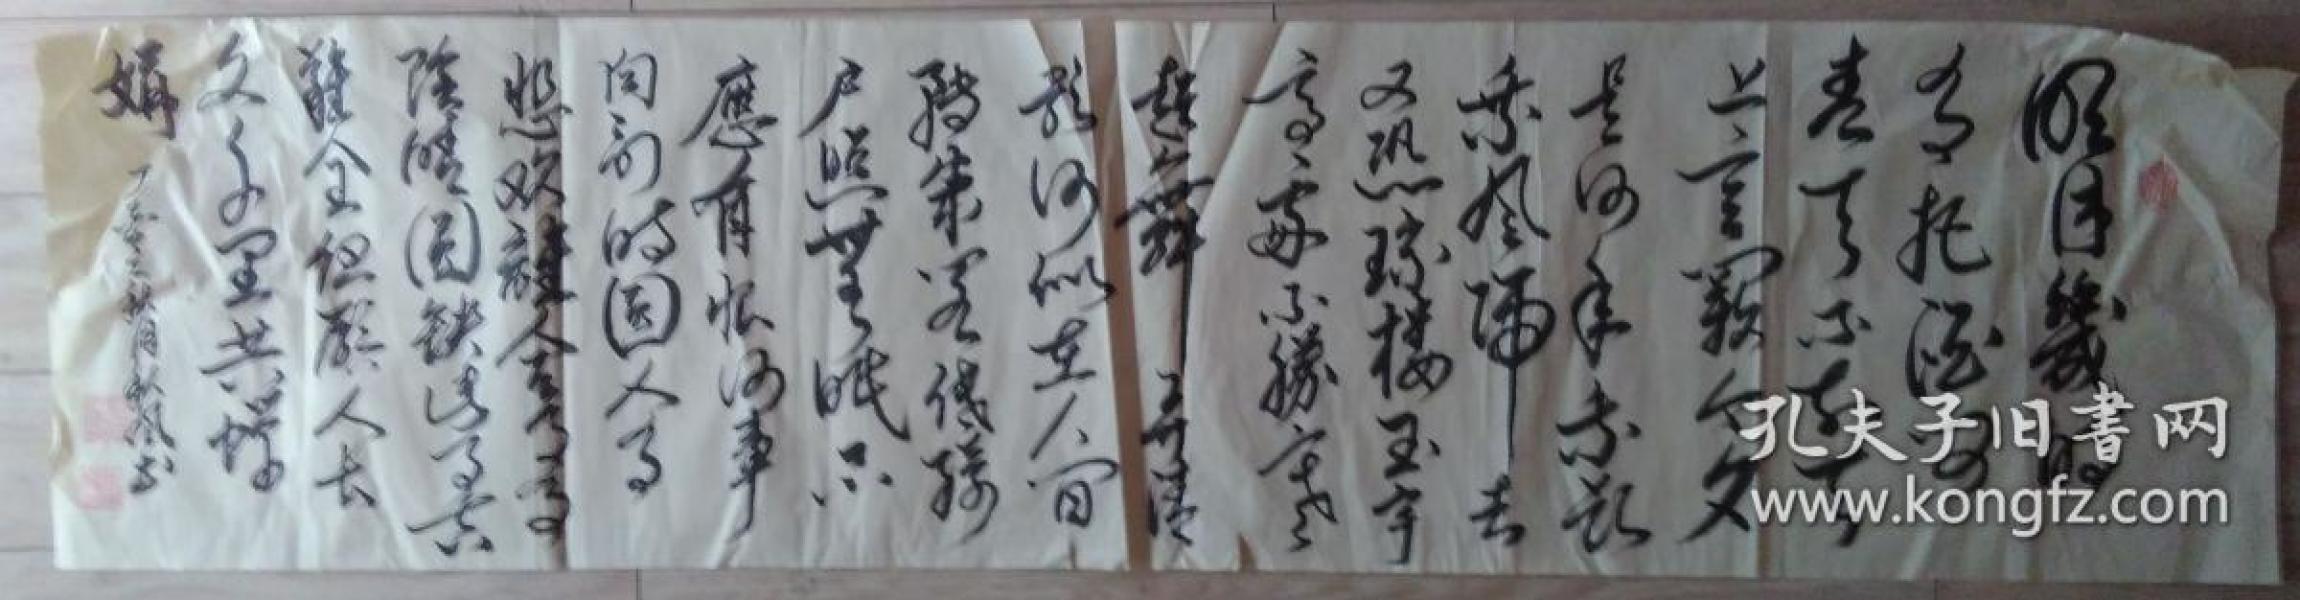 明月幾时
有把酒问
青天不知天
上宫闕今夕
是何年我欲
乘风歸去
又恐瓊樓玉宇
高處不勝寒
起舞弄清
影何似在人间
轉朱阁低綺
户照無眠不
應有恨何事
向别时圆人有
悲欢離合月有
陰晴圆缺此事古
難全但願人长
久千里共嬋
娟
丁亥之秋月秋风书
孔夫子旧书网
www.kongfz.com